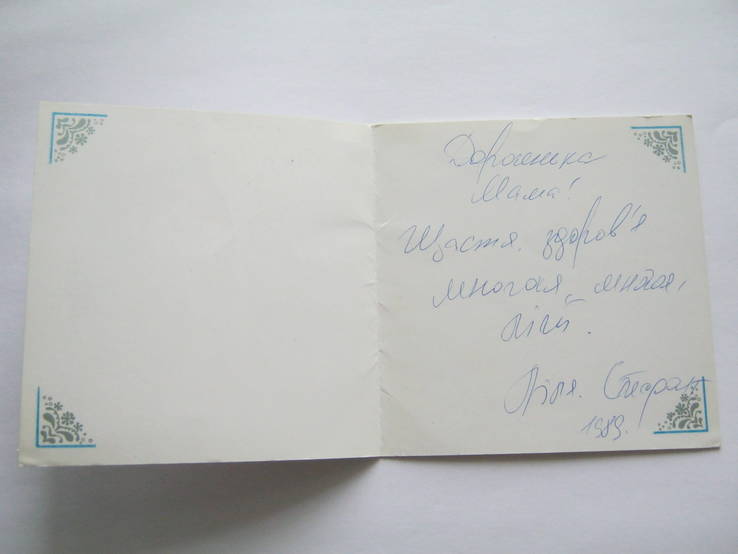 Дорогенька
Мама!
Щастя, здоров'я
многая, многая,
літ.
Ліля. Стефан
1989.